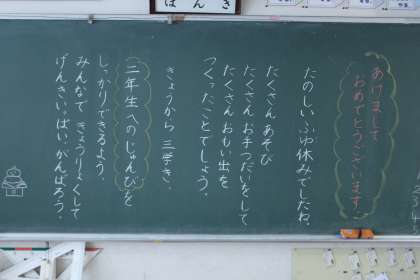 あけまして
おめでとうございます
たのしいふゆ休みでしたね。
たくさん あそび
たくさん お手つだいをして
たくさん おもい出を
つくったことでしょう。
きょうから 三学き。
二年生へのじゅんびを
しっかりできるよう、
みんなで きょうりょくして
げんきいっぱいがんばろう。
はんき